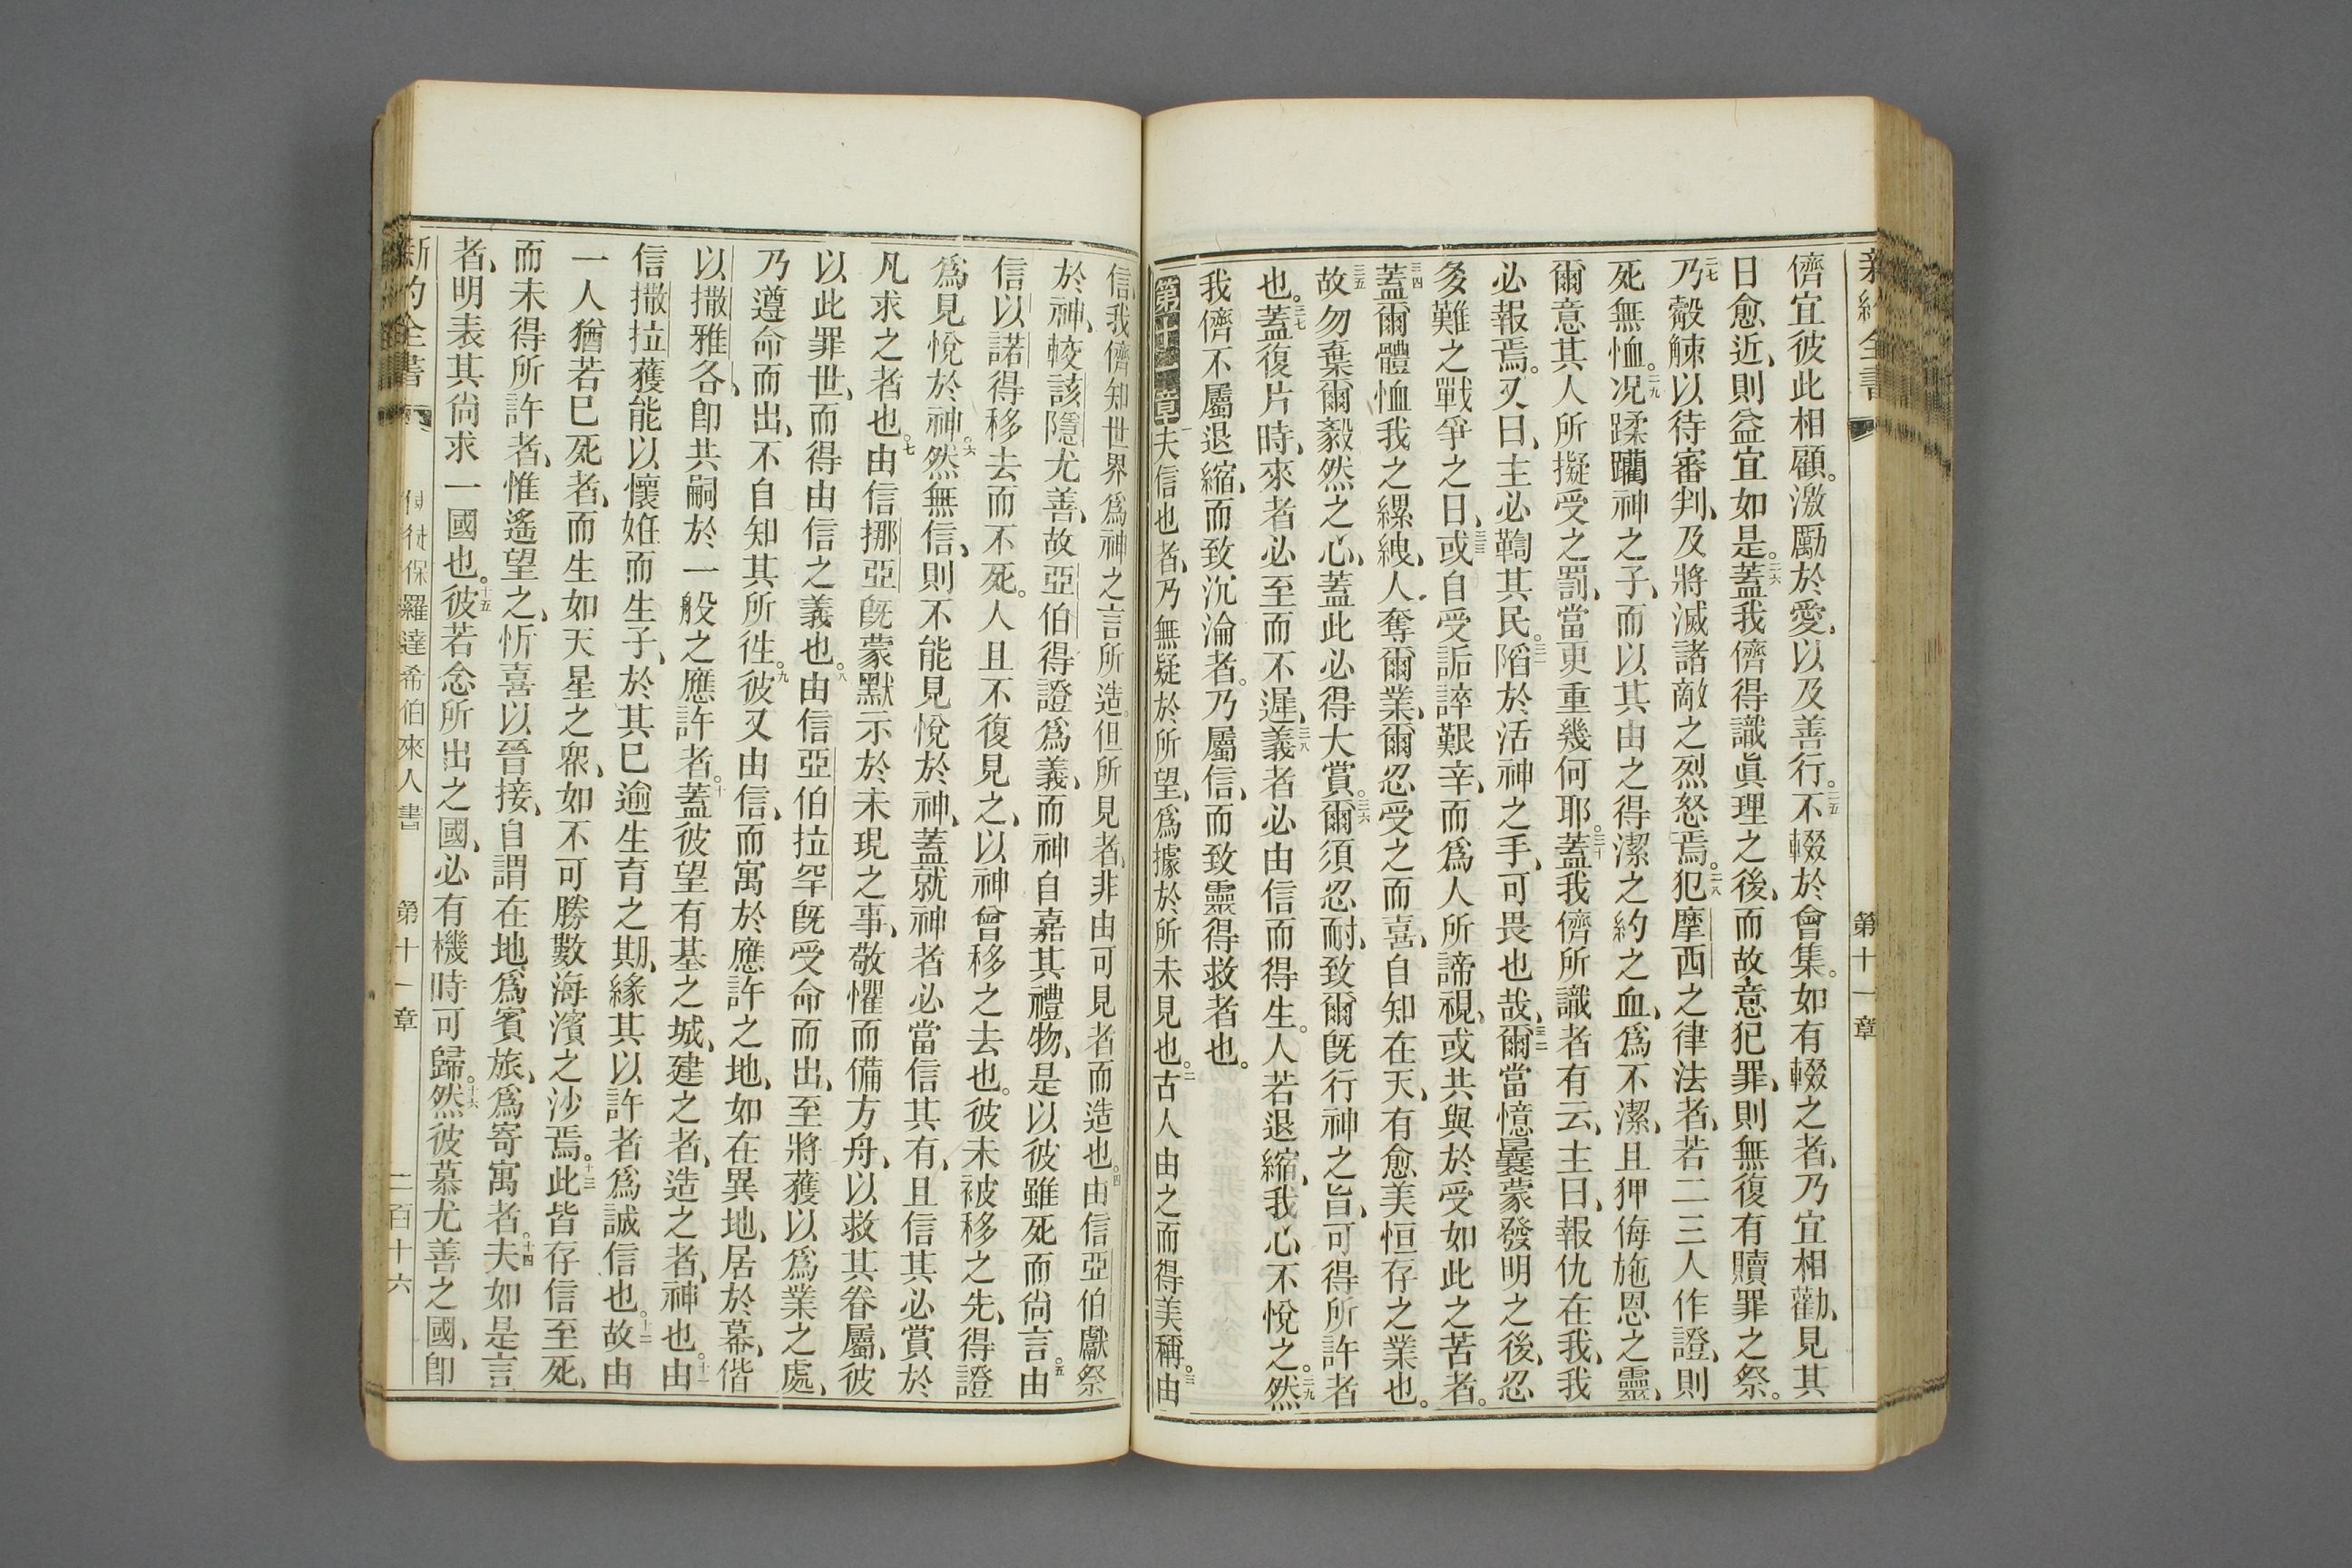 新約全書
第十一章
儕宜彼此相顧。激勵於愛、以及善行。二五不輟於會集。如有輟之者、乃宜相勸、見其
日愈近、則益宜如是。二六蓋我儕得識眞理之後、而故意犯罪、則無復有贖罪之祭。
二七乃觳觫以待審判、及將滅諸敵之烈怒焉。二八犯摩西之律法者、若二三人作證、則
死無恤。二九况蹂躪神之子、而以其由之得潔之約之血、爲不潔、且狎侮施恩之靈、
爾意其人所擬受之罰、當更重幾何耶。三十蓋我儕所識者有云、主曰、報仇在我、我
必報焉。又曰、主必鞫其民。三一陷於活神之手、可畏也哉、三二爾當憶曩蒙發明之後、忍
多難之戰爭之日、三三或自受詬誶艱辛、而爲人所諦視、或共與於受如此之苦者。
三四蓋爾體恤我之縲絏、人奪爾業、爾忍受之而喜、自知在天、有愈美恒存之業也。
三五故勿棄爾毅然之心、蓋此必得大賞。三六爾須忍耐、致爾旣行神之旨、可得所許者
也。三七蓋復片時、來者必至而不遲、三八義者必由信而得生。人若退縮、我心不悅之。三九然
我儕不屬退縮、而致沉淪者。乃屬信、而致靈得救者也。
第十一章一夫信也者、乃無疑於所望、爲據於所未見也。二古人由之而得美稱。三由
信、我儕知世界爲神之言所造。但所見者、非由可見者而造也。四由信亞伯獻祭
於神、較該隱尤善、故亞伯得證爲義、而神自嘉其禮物、是以彼雖死而尙言。五由
信以諾得移去而不死。人且不復見之、以神曾移之去也。彼未被移之先、得證
爲見悅於神。六然無信、則不能見悅於神、蓋就神者必當信其有、且信其必賞於
凡求之者也。七由信挪亞旣蒙默示於未現之事、敬懼而備方舟、以救其眷屬、彼
以此罪世、而得由信之義也。八由信亞伯拉罕旣受命而出、至將獲以爲業之處、
乃遵命而出、不自知其所徃。九彼又由信、而寓於應許之地、如在異地、居於幕、偕
以撒雅各、卽共嗣於一般之應許者。十蓋彼望有基之城、建之者、造之者、神也。十一由
信撒拉獲能以懷姙而生子、於其已逾生育之期、緣其以許者爲誠信也。十二故由
一人猶若已死者、而生如天星之衆、如不可勝數海濱之沙焉。十三此皆存信至死、
而未得所許者、惟遙望之、忻喜以晉接、自謂在地、爲賓旅、爲寄寓者。十四夫如是言
者、明表其尙求一國也。十五彼若念所出之國、必有機時可歸。十六然彼慕尤善之國、卽
新約全書 使徒保羅達希伯來人書 第十一章 二百十六